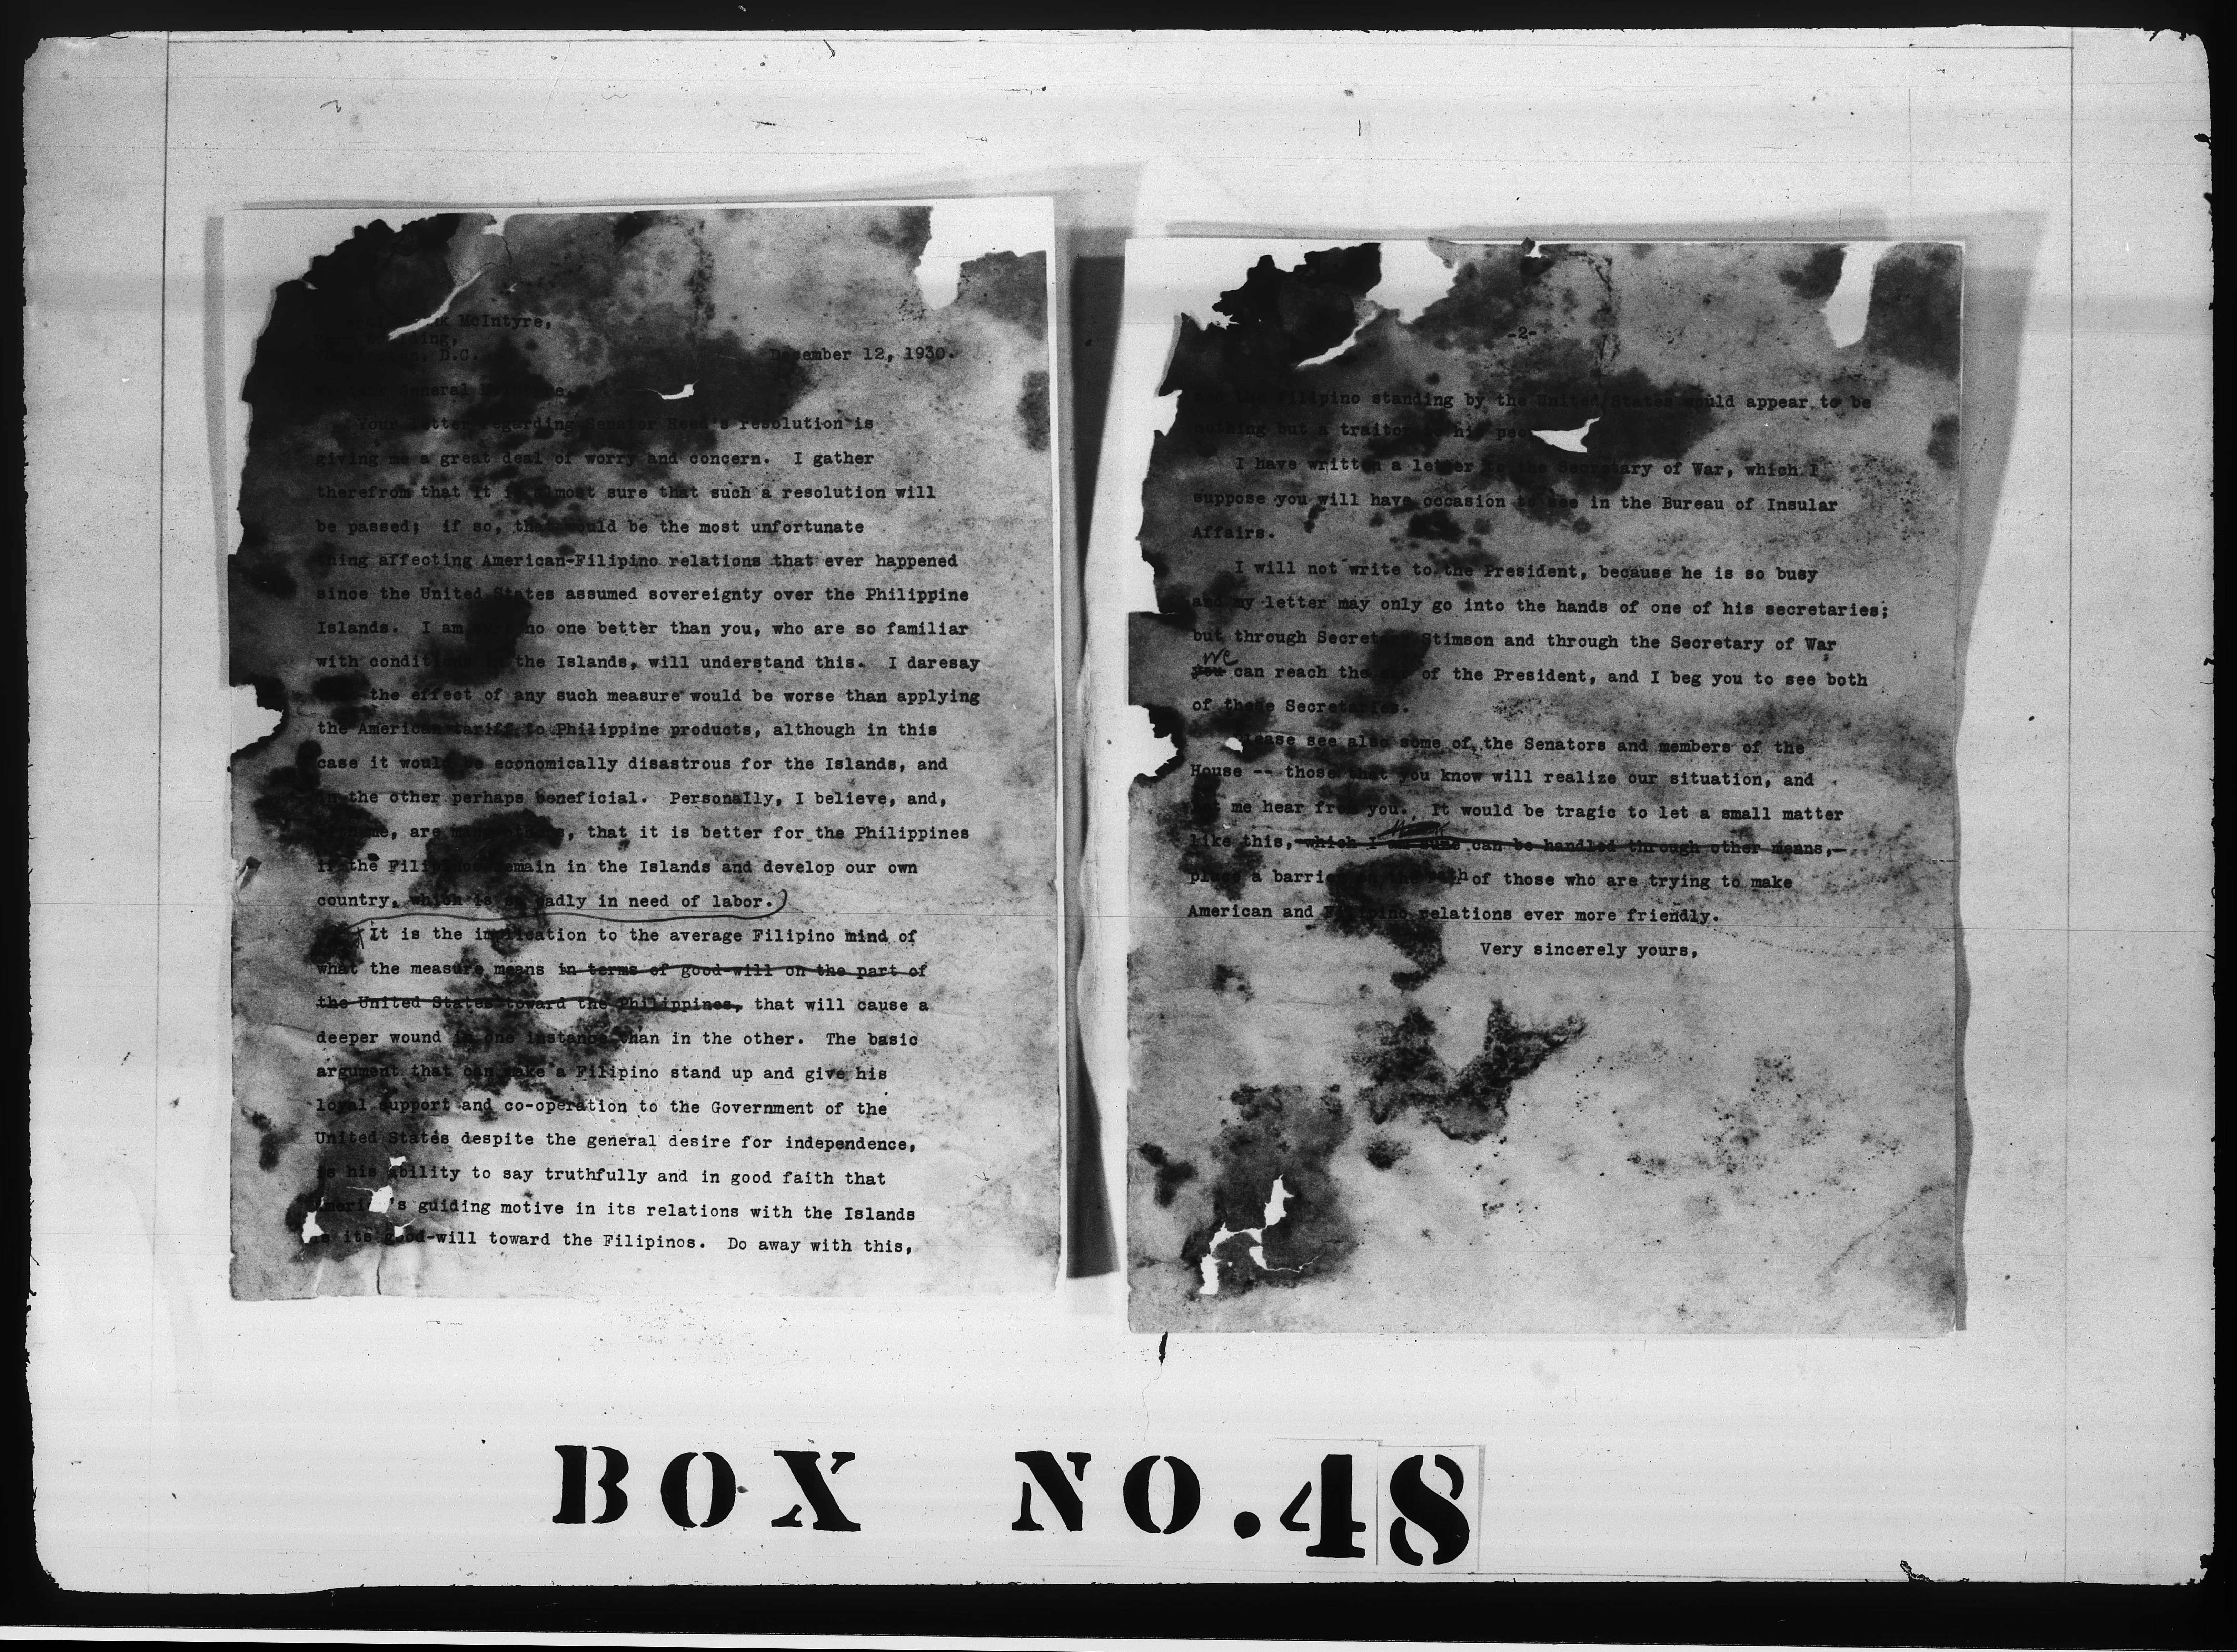 McIntyre,
D.C.
December 12, 1930.
General
Your letter regarding Senator Reed's resolution is
giving me a great deal of worry and concern. I gather
therefrom that it is almost sure that such a resolution will
be passed; if so, that would be the most unfortunate
thing affecting American-Filipino relations that ever happened
since the United States assumed sovereignty over the Philippine
Islands. I am sure no one better than you, who are so familiar
with conditions in the Islands, will understand this. I daresay
the effect of any such measure would be worse than applying
the American tariff to Philippine products, although in this
case it would be economically disastrous for the Islands, and
in the other perhaps beneficial. Personally, I believe, and,
are many others, that it is better for the Philippines
if the Filipinos remain in the Islands and develop our own
country, which is so badly in need of labor.
It is the implication to the average Filipino mind of
what the measure means in terms of good-will on the part of
the United States toward the Philippines, that will cause a
deeper wound in one instance than in the other. The basic
argument that can make a Filipino stand up and give his
loyal support and co-operation to the Government of the
United States despite the general desire for independence,
is his ability to say truthfully and in good faith that
America's guiding motive in its relations with the Islands
is its good-will toward the Filipinos. Do away with this,
-2-
and the Filipino standing by the United States would appear to be
nothing but a traitor to his people.
I have written a letter to the Secretary of War, which I
suppose you will have occasion to see in the Bureau of Insular
Affairs.
I will not write to the President, because he is so busy
and my letter may only go into the hands of one of his secretaries;
but through Secretary Stimson and through the Secretary of War
we
you can reach the ear of the President, and I beg you to see both
of these Secretaries.
Please see also some of the Senators and members of the
House -- those that you know will realize our situation, and
let me hear from you. It would be tragic to let a small matter
like this, which I am sure can be handled through other means,
place a barrier in the path of those who are trying to make
American and Filipino relations ever more friendly.
Very sincerely yours,
BOX NO. 48